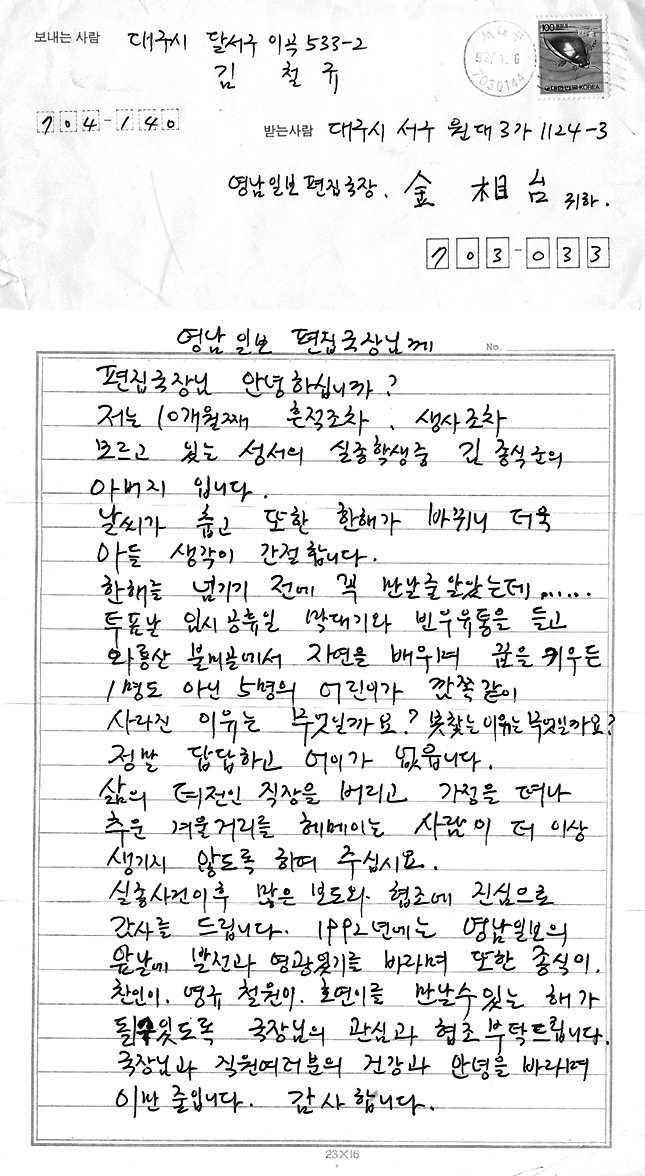 보내는 사람 대구시 달서구 이곡 533-2
김 철규
704-140
100
대한민국 KOREA
92. 1. 6
7030144
받는사람 대구시 서구 원대 3가 1124-3
영남일보 편집국장. 金 相 台 귀하.
703-033
영남일보 편집국장님께
No.
편집국장님 안녕하십니까?
저는 10개월째 흔적조차. 생사조차
모르고 있는 성서의 실종학생중 김 종식군의
아버지 입니다.
날씨가 춥고 또한 한해가 바뀌니 더욱
아들 생각이 간절합니다.
한해를 넘기기 전에 꼭 만난줄 알았는데......
투표날 임시공휴일 막대기와 빈우유통을 들고
와룡산 불미골에서 자연을 배우며 꿈을 키우든
1명도 아닌 5명의 어린이가 깜쪽같이
사라진 이유는 무엇일까요? 못찾는 이유는 무엇일까요?
정말 답답하고 어이가 없읍니다.
삶의 터전인 직장을 버리고 가정을 떠나
추운 겨울거리를 헤메이는 사람이 더 이상
생기지 않도록 하여 주십시요.
실종사건이후 많은 보도와 협조에 진심으로
감사를 드립니다. 1992년에는 영남일보의
앞날에 발전과 영광있기를 바라며 또한 종식이.
찬인이. 영규 철원이. 호연이를 만날수 있는 해가
될수있도록 국장님의 관심과 협조 부탁드립니다.
국장님과 직원여러분의 건강과 안녕을 바라며
이만 줄입니다. 감사합니다.
23×16